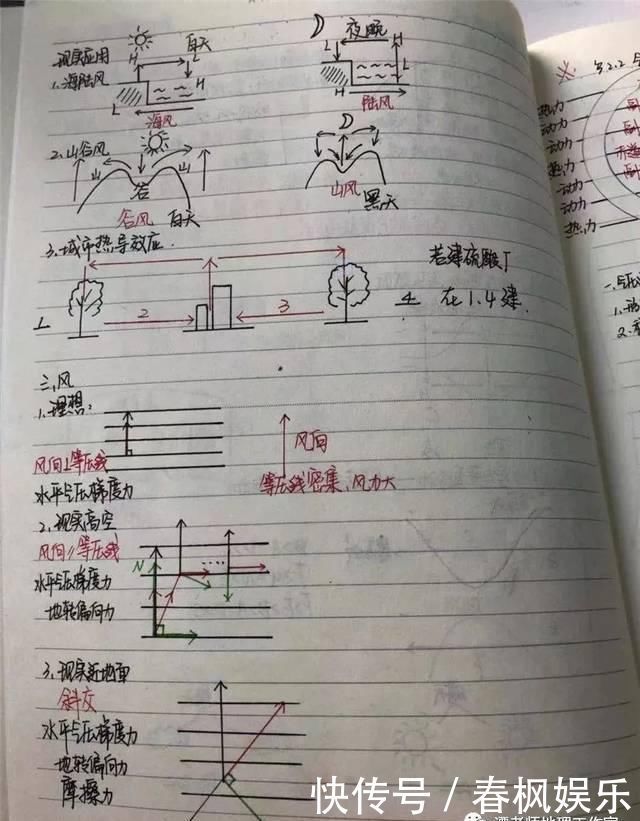 现实应用
白天
夜晚
1.海陆风
H
L
H
L
L
H
L
H
L
H
海风
陆风
2.山谷风
山
山
谷
谷风 白天
山风
黑天
3.城市热导效应.
若建硫酸厂
1
2
3
4
在1.4建.
三.风
1.理想:
风向⊥等压线
水平气压梯度力
风向
等压线密集、风力大
2.现实高空
风向∥等压线
N
水平气压梯度力
地转偏向力
3.现实近地面
斜交
水平气压梯度力
地转偏向力
摩擦力
热力
动力
动力
热力
动力
动力
热力
快传号 / 春枫娱乐